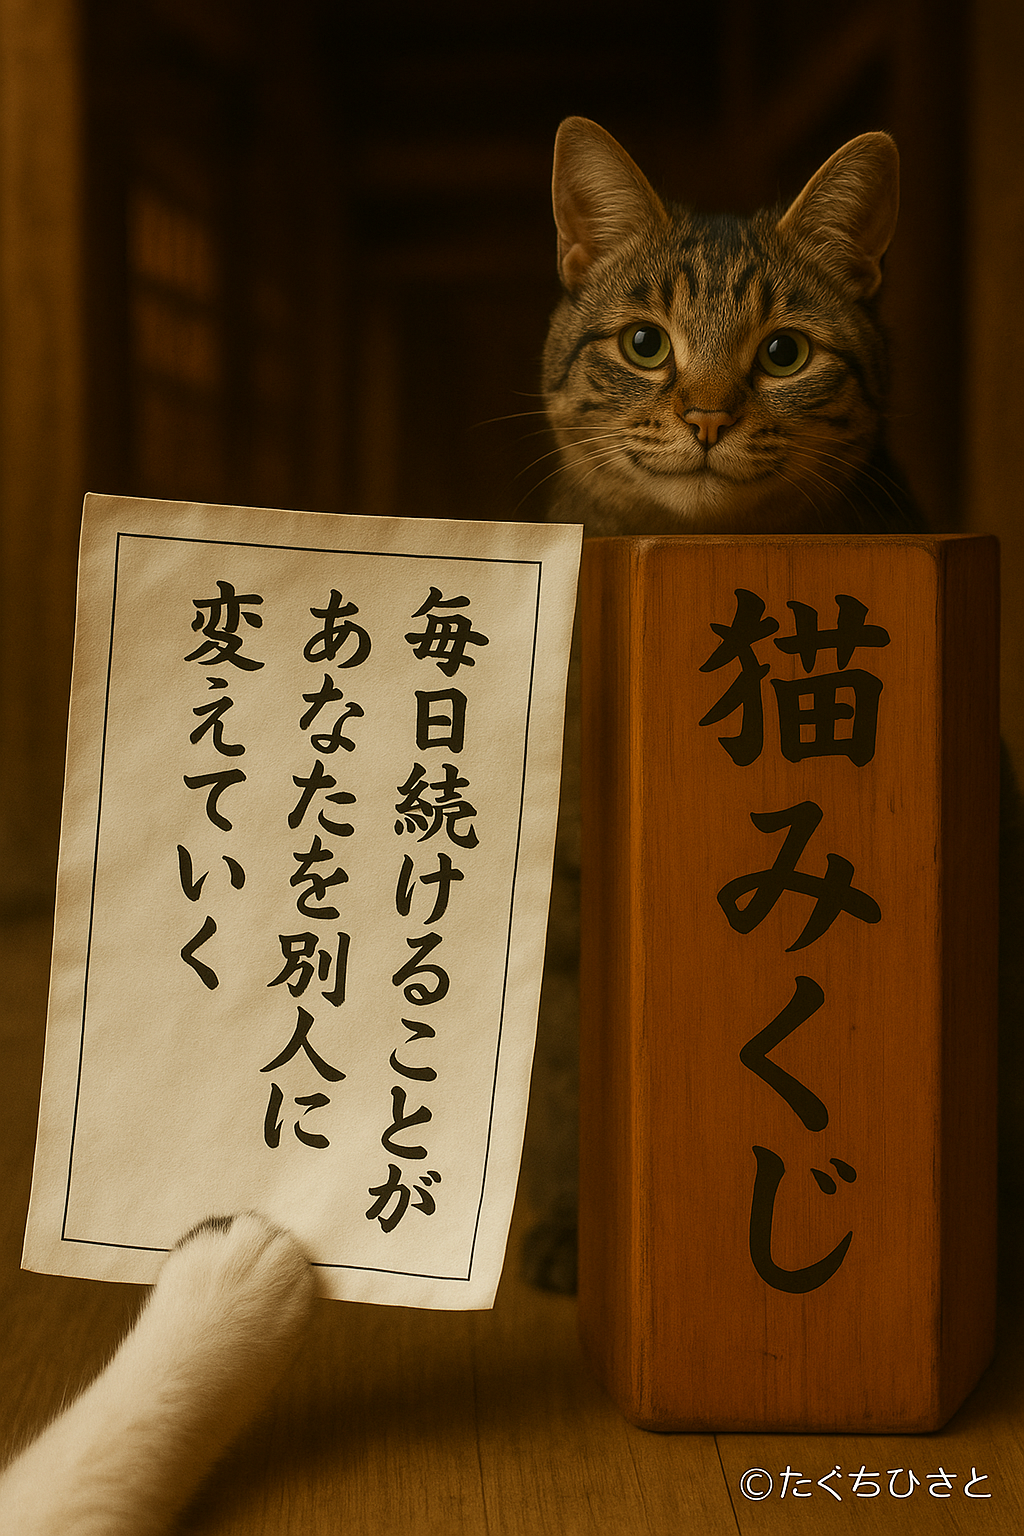 毎日続けることが
あなたを別人に
変えていく
猫みくじ
©たぐちひさと